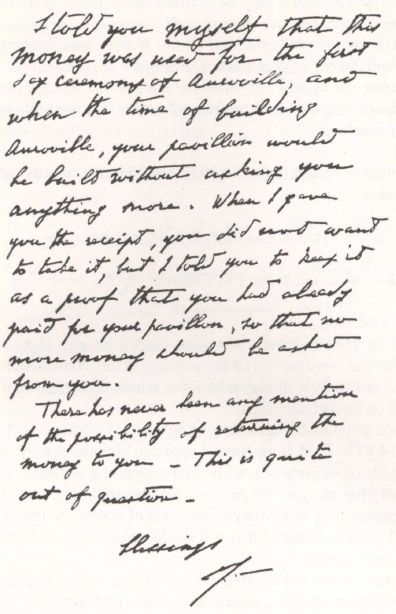 I told you myself that this
money was used for the first
day ceremony of Auroville, and
when the time of building
Auroville, your pavillion would
be built without asking you
anything more. When I gave
you the receipt, you did not want
to take it, but I told you to keep it
as a proof that you had already
paid for your pavillon, so that no
more money should be asked
from you.
There has never been any mention
of the possibility of returning the
money to you - This is quite
out of question -
Blessings